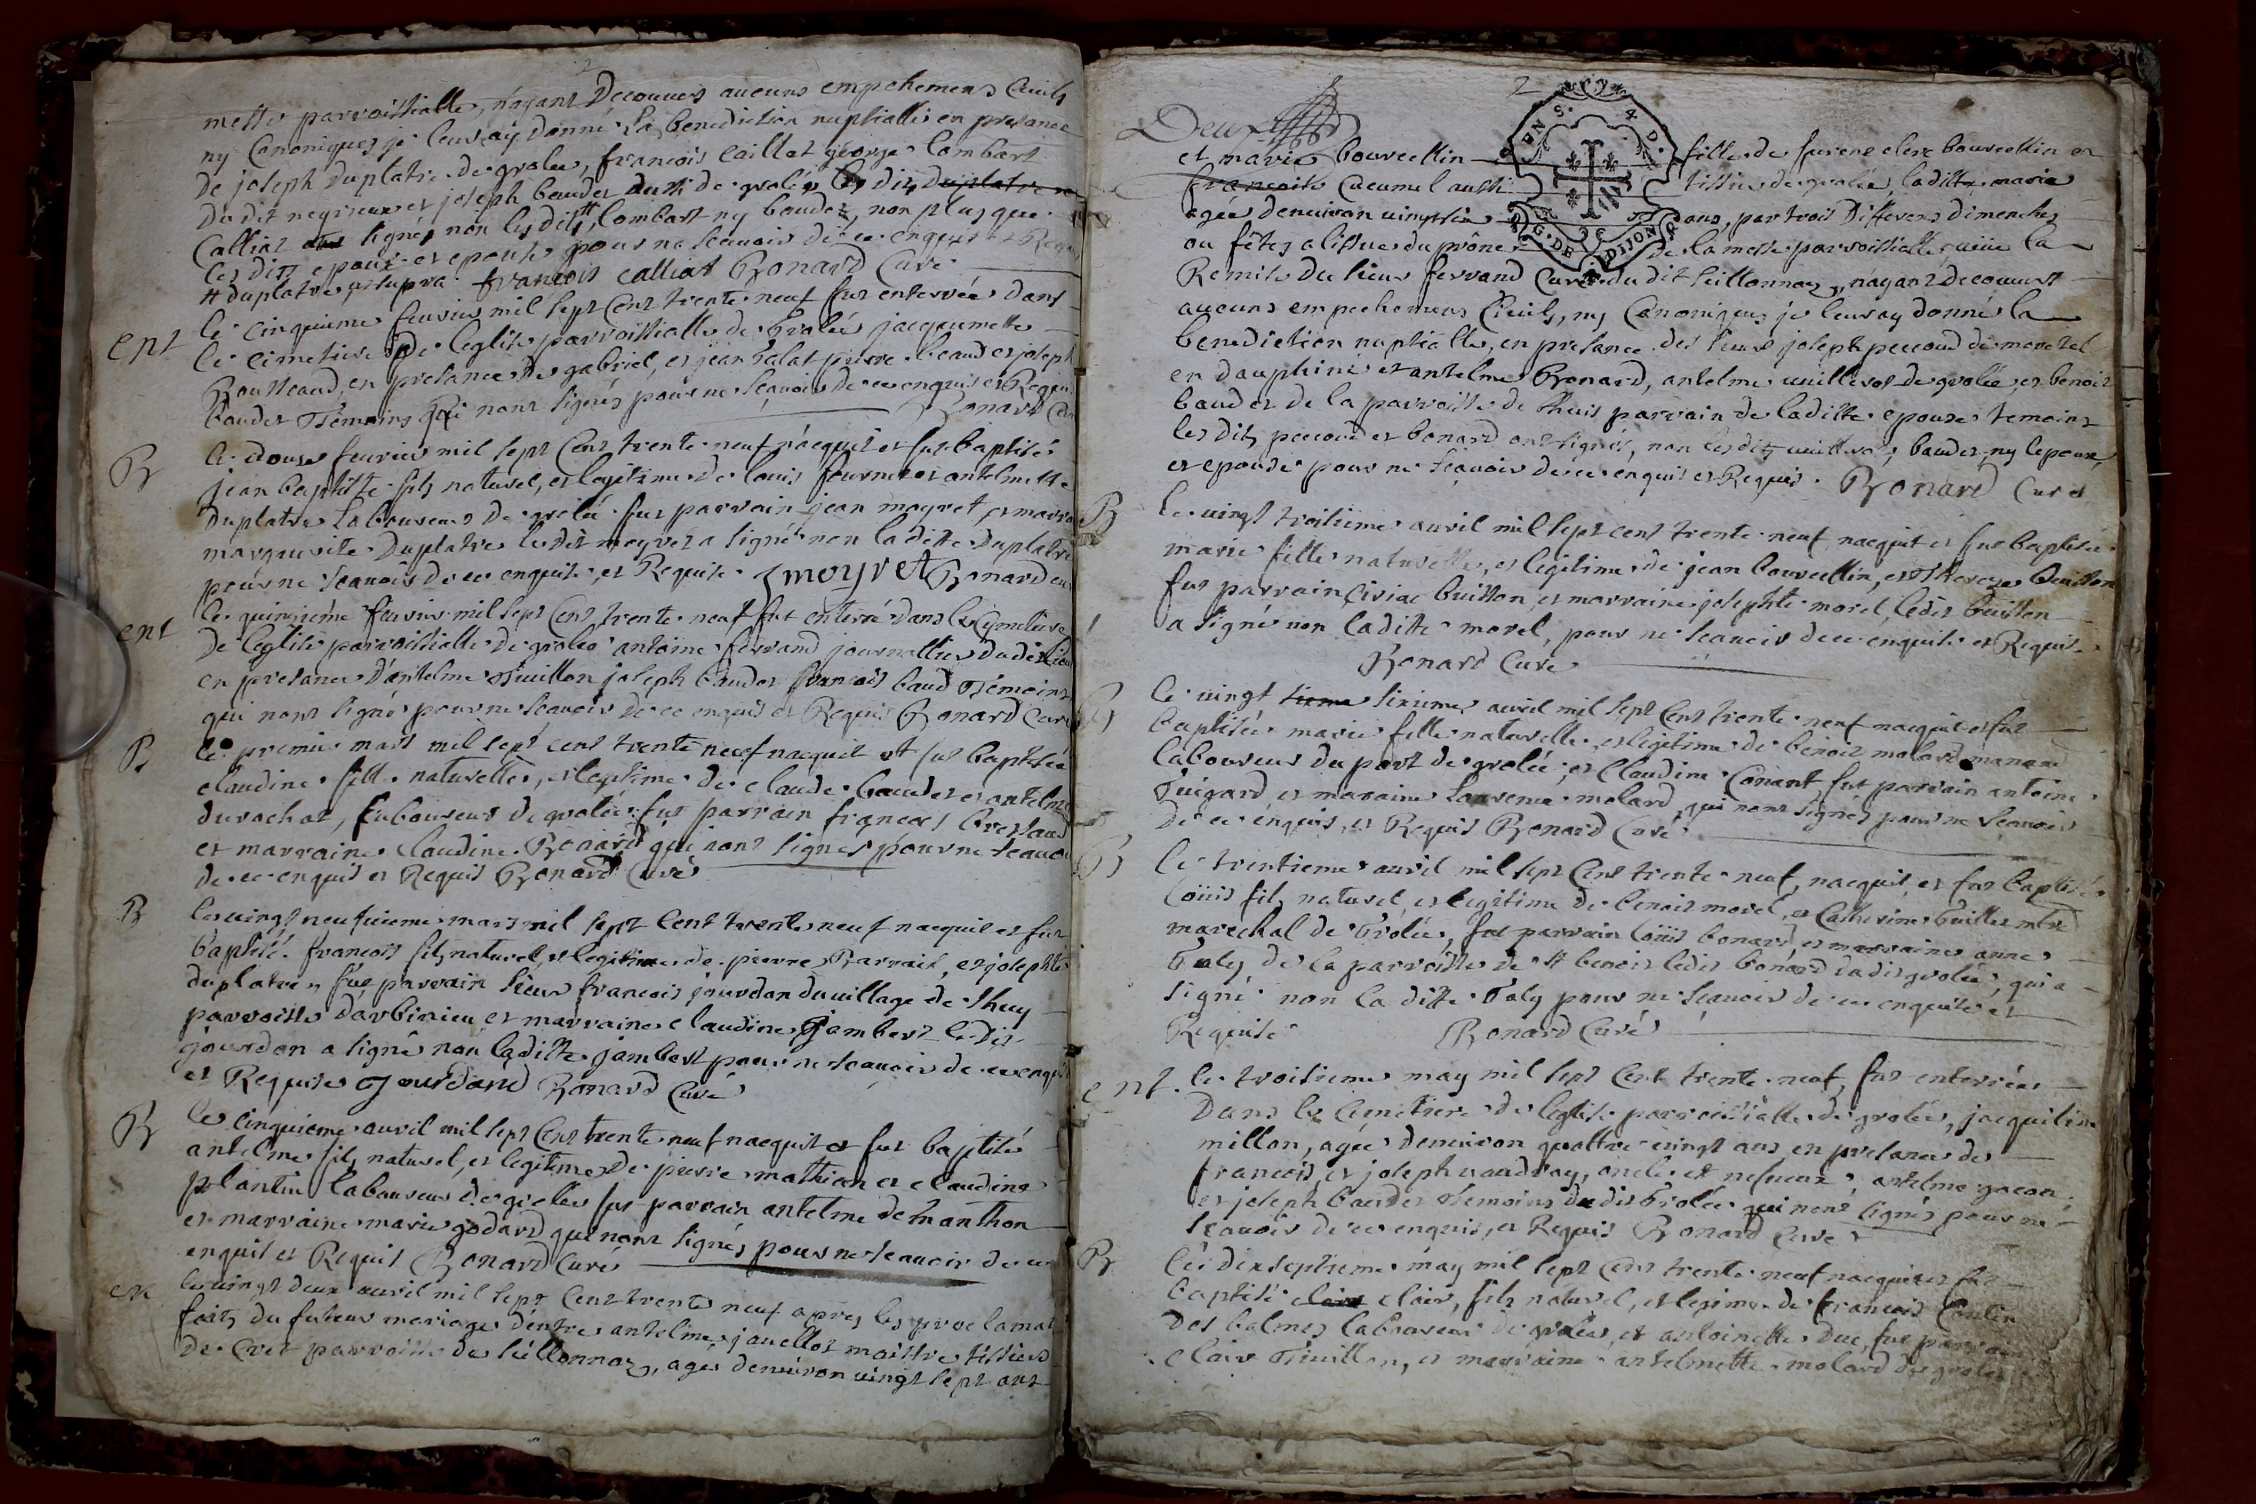 messe parroissialle, n'ayant decouvert aucuns empechemens Civils
ny Canoniques je leur ay donné la benediction nuptialle en presance
de joseph duplatre de grolee, francois caillat george lombart
du dit neyrieux et joseph baudet aussi de grolée les dits duplatre et
Calliat ont signés non les dits lombart ny baudet, non plus que
les dits epoux et epouse pour ne scavoir de ce enquis et Requis
# duplatre ut supra francois calliat Bonard Curé
ent
le cinquieme fevrier mil sept cent trente neuf fut enterrée dans
le cimetiere de leglise parroissialle de Grolée jacquemette
Rousseaud, en presance de gabriel, et jean pierre beaud et joseph
baudet Temoins qui n'ont signés pour ne scavoir de ce enquis et Requis
Bonard Curé
B
le douse fevrier mil sept cent trente neuf nacquit et fut baptisé
jean baptiste fils naturel, et legitime de louis fournier et antelmette
duplatre laboureur de grolée fut parrain jean moyret, et marraine
marguerite duplatre le dit moyret a signé non la dite duplatre
pour ne scavoir de ce enquise, et Requise moyret Bonard curé
ent
le quinzième fevrier mil sept cent trente neuf fut enterré dans le Cymetiere
de leglise parroissialle de grolée antoine ferrand journallier du dit lieu
en presance d'antelme Tuillon joseph baudet francois baud Témoins
qui nont signés pour ne scavoir de ce enquis et Requis Bonard Curé
B
le premier mars mil sept cent trente neuf nacquit et fut baptisée
claudine fille naturelle, et legitime de claude baudet et antelme
durochat, laboureur de grolée fut parrain francois bressand
et marraine claudine Bonard qui nont signés pour ne scavoir
de ce enquis et Requis Bonard Curé
B
le vingt neuvieme mars mil sept cent trente neuf nacquit et fut
baptisé francois fils naturel et legitime de pierre Parrait, et josephte
duplatre fut parrain sieur francois jourdan du village de thuy
parroisse d'arbinieu et marraine claudine jambert le dit
jourdan a signé non la ditte jambert pour ne scavoir de ce enquise
et Requise Jourdand Bonard Curé
B
le cinquieme avril mil sept cent trente neuf nacquit et fut baptisé
antelme fils naturel, et legitime de pierre mathian et claudine
plantin laboureur de grollée fut parrain antelme demanthon
et marraine marie godard qui nont signés pour ne scavoir de ce
enquis et Requis Bonard Curé
le vingt deux avril mil sept cent trente neuf apres les proclamat
faits du futeur mariage d'entre antelme janellot maistre tissier
de Cret parroisse de seillonnaz, agé denviron vingt sept ans
2
Deux
et marie bourcellin fille de furent clere bourcellin et
francoise Cucumel aussi tissier de grolée la ditte marie
agée denviron vingt six ans, par trois differens dimenches
ou fêtes a lissue du prône de la messe parroissialle, suivie la
EN S. 4 D. G. DE DIJON
Remise du sieur ferrand Curé du dit seillonnaz, n'ayant decouvert
aucuns empechemens Civils, ny Canoniques je leur ay donné la
benediction nuptialle, en presance des sieurs joseph peccoud de morestel
en dauphiné et antelme Bonard, antelme vuilleros de grolée et benoit
baudet de la parroisse de thuis parrain de la ditte epouse temoins
les dits peccoud et bonard ont signés, non les dits vuilleros, baudet, ny lepoux
et epouse pour ne scavoir de ce enquis et Requis. Bonard Curé
B
le vingt troisieme avril mil sept cent trente neuf nacquit et fut baptisée
marie fille naturelle, et legitime de jean bourcellin, et Therese buisson
fut parrain Ciriac buisson, et marraine josephte morel, le dit buisson
a signé non la ditte morel, pour ne scavoir de ce enquise et Requise
Bonard Curé
le vingt sixieme avril mil sept cent trente neuf nacquit et fut
baptisée marie fille naturelle et legitime de benoit molard manand
laboureur du port de grolée, et Claudine Conant, fut parrain antoine
Guigard et maraine laurence molard qui nont signés pour ne scavoir
de ce enquis, et Requis Bonard Curé
B
le trentieme avril mil sept cent trente neuf, nacquit, et fut baptisé
loüis fils naturel et legitime de benoit morel, et Catherine buillet mtre
marechal de Grolée, fut parrain loüis bonard, et marraine anne
Faly, de la parroisse de st benoit le dit bonard du dit grolée, qui a
signé non la ditte Faly pour ne scavoir de ce enquise et
Requise Bonard Curé
ent.
le troisieme may mil sept cent trente neuf, fut enterrée
Dans le Cimetiere de leglise parroissialle de grolée, jacqueline
millon, agée denviron quattre vingt ans, en presance de
francois, et joseph vaudray, oncle et nefveux, antelme gacon
et joseph baudet Temoins du dit Grolée qui nont signés pour ne
scavoir de ce enquis, et Requis Bonard Curé
B
le dixseptieme may mil sept cent trente neuf nacquit et fut
baptisé clair, fils naturel, et legime de francois Coulin
des balmes laboureur de grolée, et antoinette duc, fut parrain
clair Tuillon, et marraine antelmette molard de grolée